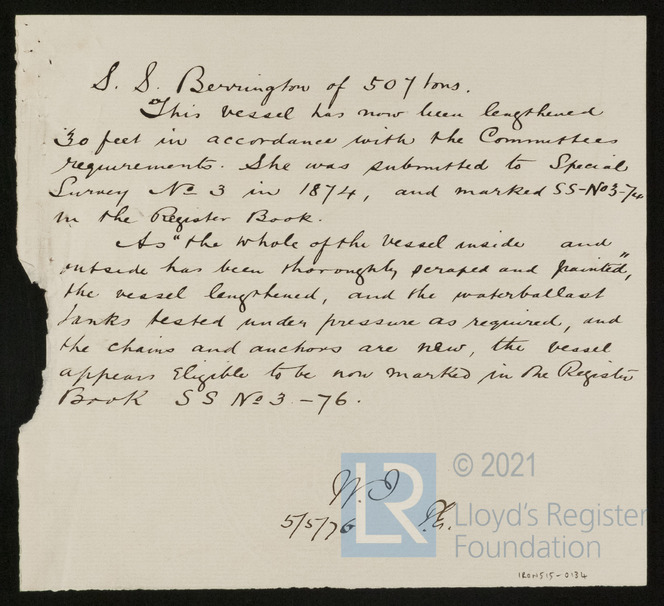 S. S. Berrington of 507 tons.
This vessel has now been lengthened
30 feet in accordance with the Committees
requirements. She was submitted to Special
Survey No 3 in 1874, and marked SS-No3-74
in the Register Book.
As "the whole of the vessel inside and
outside has been thoroughly scraped and painted",
the vessel lengthened, and the waterballast
tanks tested under pressure as required, and
the chains and anchors are new, the vessel
appears Eligible to be now marked in the Register
Book SS No 3 - 76.
W.J
5/5/76
LR
© 2021
Lloyd's Register
Foundation
IRON515-0134